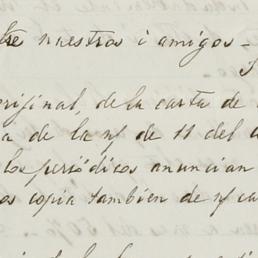 tre nuestros i amigos -
original, de la carta de
a de la nf de 11 del
los periódicos anuncian
os copia también de nf ca